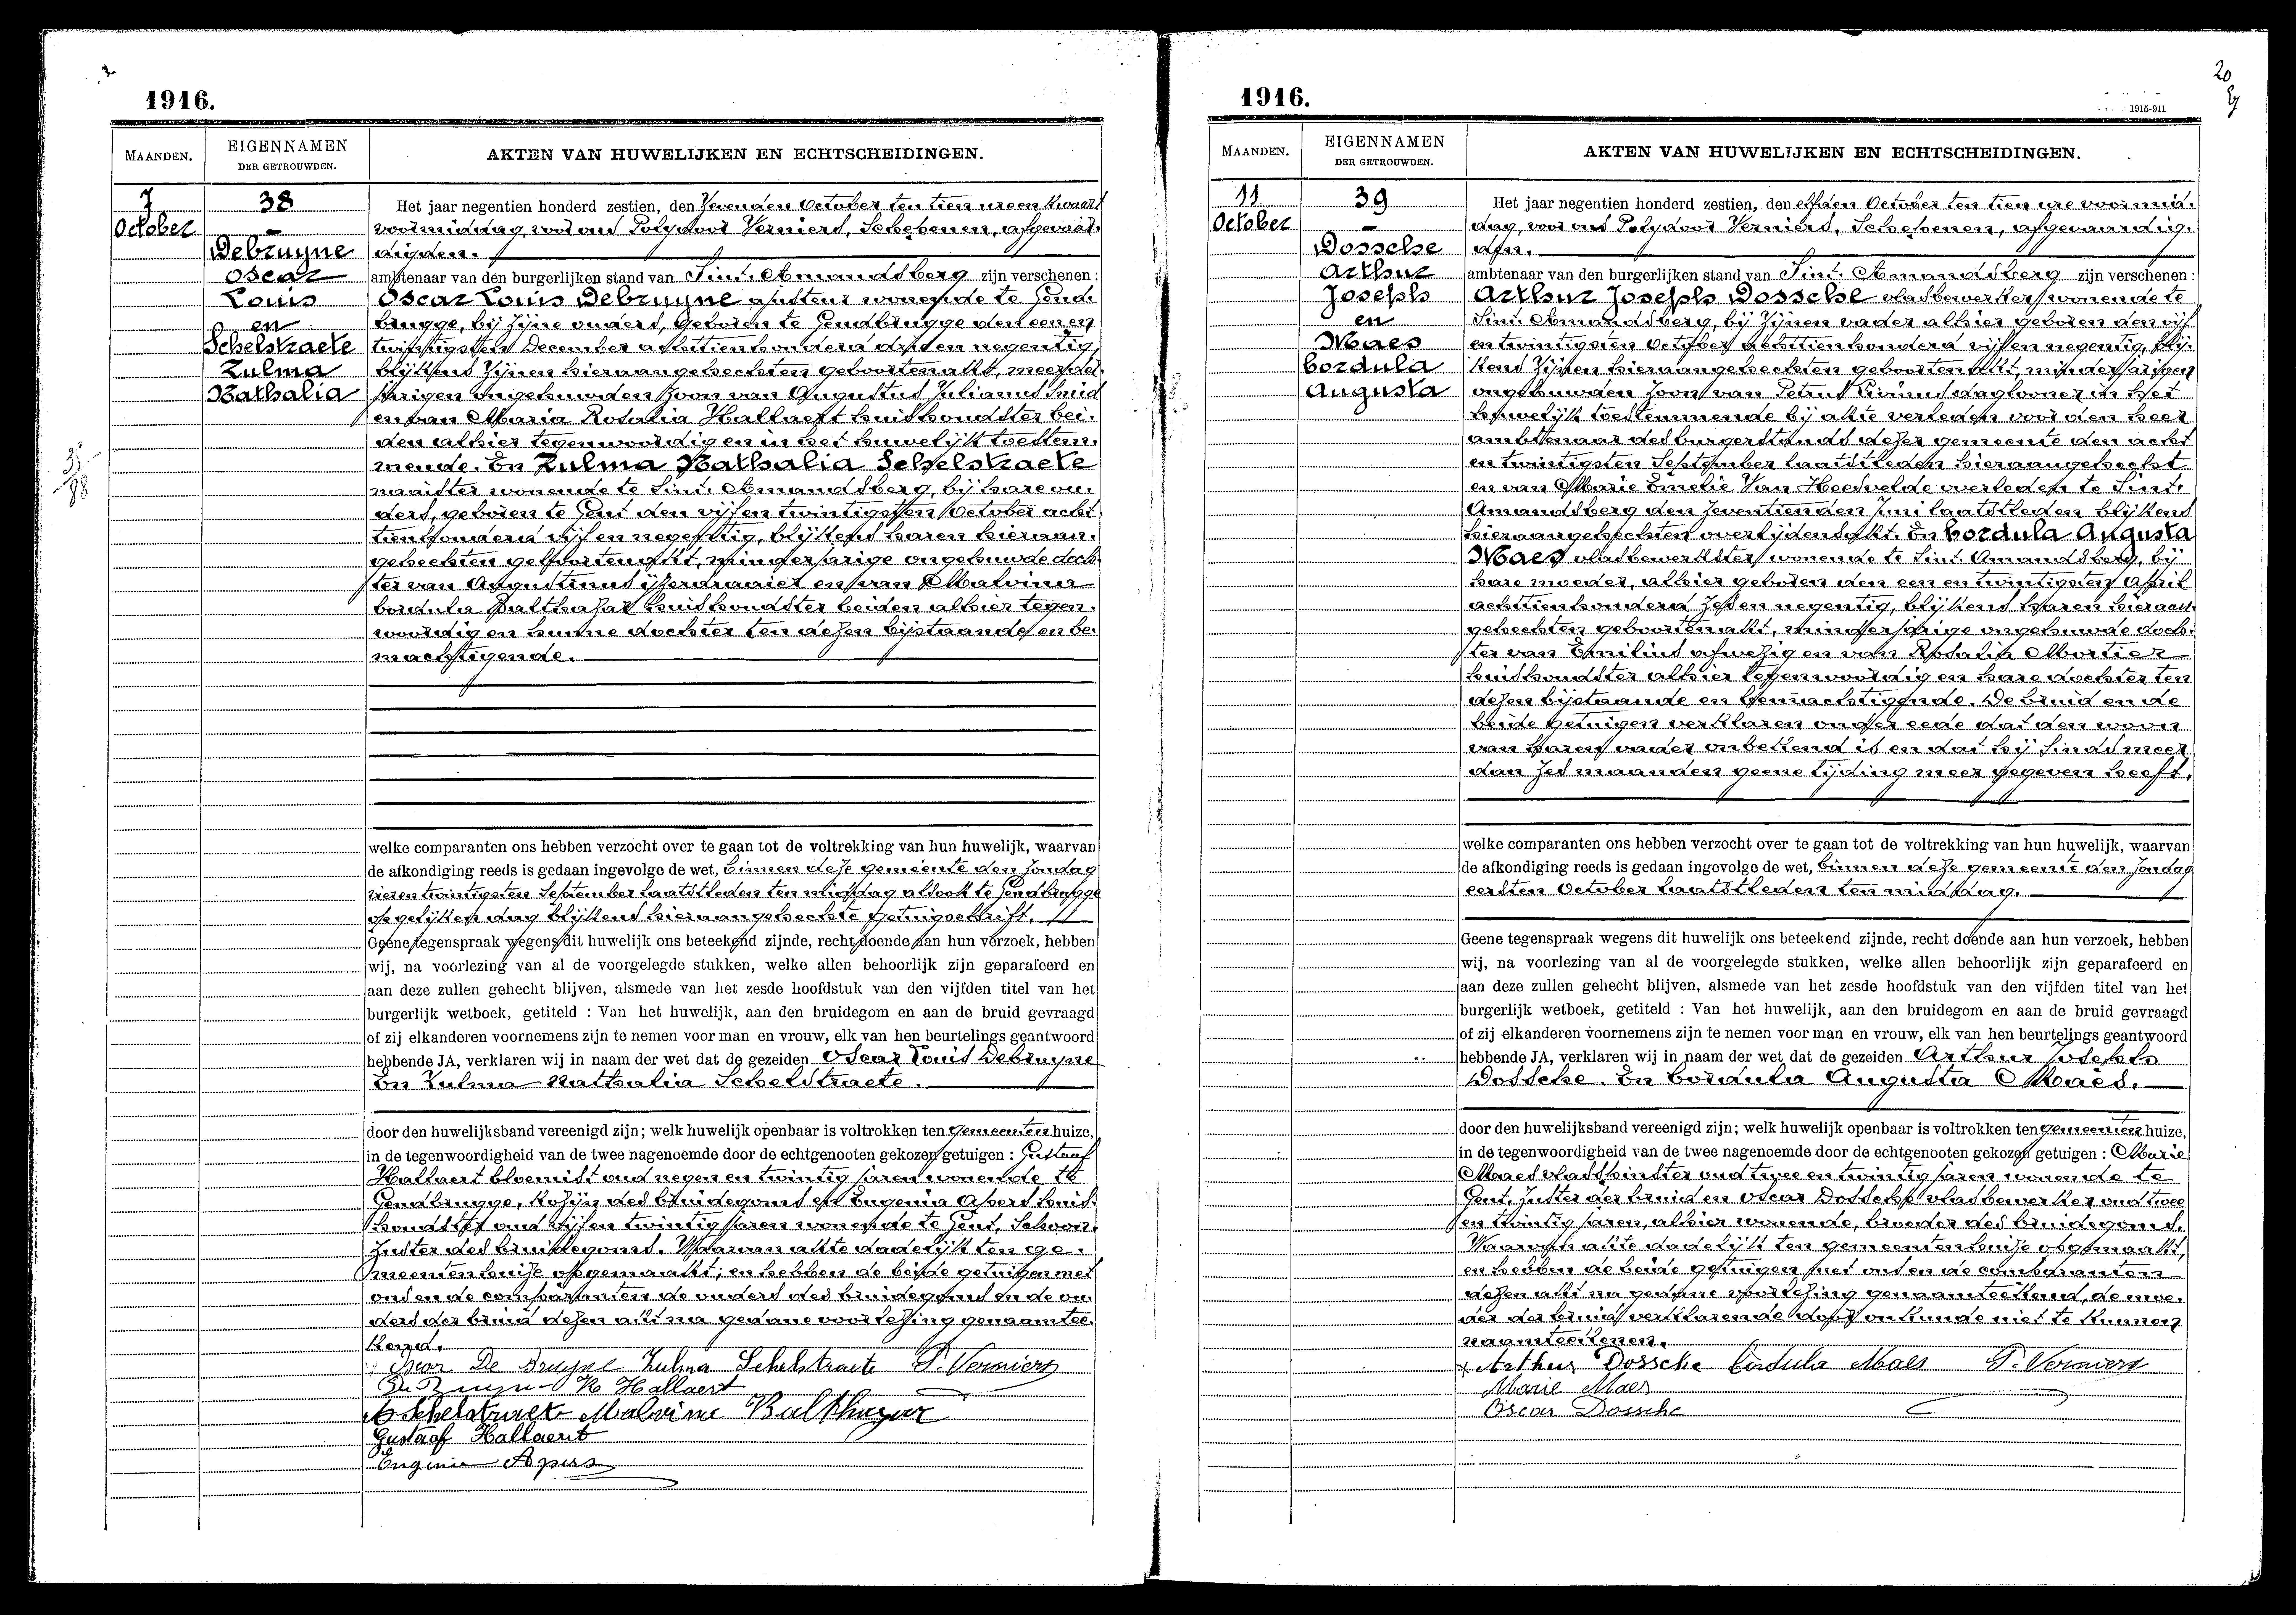 1916.
MAANDEN.
EIGENNAMEN
DER GETROUWDEN.
AKTEN VAN HUWELIJKEN EN ECHTSCHEIDINGEN.
7
October
38
Debruyne
Oscar
Louis
en
Schelstraete
Zulma
Nathalia
Het jaar negentien honderd zestien, den Zevenden October ten tien ure en kwart
voormiddag, voor ons Polydoor Verniers, Schepenen, afgevaar-
digden.
ambtenaar van den burgerlijken stand van Sint-Amandsberg zijn verschenen :
Oscar Louis Debruyne ajusteur wonende te Gend-
brugge, bij zijne ouders, geboren te Gendbrugge den een en
twintigsten December achttienhonderd dry en negentig,
blijkens zijnen hieraangehechten geboortenakt, meerder-
jarigen ongehuwden zoon van Augustus Julianus smid
en van Maria Rosalia Hallaert huishoudster bei-
den alhier tegenwoordig en in het huwelijk toestem-
mende. En Zulma Nathalia Schelstraete
naaister wonende te Sint-Amandsberg, bij hare ou-
ders, geboren te Gent den vijf en twintigsten October acht-
tienhonderd vijf en negentig, blijkens haren hieraan-
gehechten geboortenakt, minderjarige ongehuwde doch-
ter van Augustinus ijzerdraaier en van Malvina
Cordula Balthazar huishoudster beiden alhier tegen-
woordig en hunne dochter ten dezen bijstaande en be-
machtigende.
welke comparanten ons hebben verzocht over te gaan tot de voltrekking van hun huwelijk, waarvan
de afkondiging reeds is gedaan ingevolge de wet, binnen deze gemeente den Zondag
vier en twintigsten September laatstleden ten middag alsook te Gendbrugge
op gelijken dag blijkens hieraangehechte getuigschrift.
Geene tegenspraak wegens dit huwelijk ons beteekend zijnde, recht doende aan hun verzoek, hebben
wij, na voorlezing van al de voorgelegde stukken, welke allen behoorlijk zijn geparafeerd en
aan deze zullen gehecht blijven, alsmede van het zesde hoofdstuk van den vijfden titel van het
burgerlijk wetboek, getiteld : Van het huwelijk, aan den bruidegom en aan de bruid gevraagd
of zij elkanderen voornemens zijn te nemen voor man en vrouw, elk van hen beurtelings geantwoord
hebbende JA, verklaren wij in naam der wet dat de gezeiden Oscar Louis Debruyne
En Zulma Nathalia Schelstraete.
door den huwelijksband vereenigd zijn; welk huwelijk openbaar is voltrokken ten gemeenten huize,
in de tegenwoordigheid van de twee nagenoemde door de echtgenooten gekozen getuigen : Gustaaf
Hallaert bloemist oud negen en twintig jaren wonende te
Gendbrugge, kozijn des bruidegoms en Eugenia Apers huis-
houdster oud vijf en twintig jaren wonende te Gent, Schoon-
zuster des bruidegoms. Waarvan akte dadelijk ten ge-
meentenhuize opgemaakt; en hebben de beide getuigen met
ons en de comparanten de ouders des bruidegoms en de ou-
ders der bruid dezen akt na gedane voorlezing genaamtee-
kend.
Oscar De Bruyne Zulma Schelstraete P. Verniers
De Bruyne R Hallaert
A Schelstraete Malvine Balthazar
Gustaaf Hallaert
Eugenie Apers
1916.
20
1915-911
MAANDEN.
EIGENNAMEN
DER GETROUWDEN.
AKTEN VAN HUWELIJKEN EN ECHTSCHEIDINGEN.
11
October
39
Dossche
Arthur
Joseph
en
Maes
Cordula
Augusta
Het jaar negentien honderd zestien, den elfden October ten tien ure voormid-
dag, voor ons Polydoor Verniers, Schepenen, afgevaardig-
den.
ambtenaar van den burgerlijken stand van Sint-Amandsberg zijn verschenen :
Arthur Joseph Dossche vlasbewerker wonende te
Sint-Amandsberg, bij zijnen vader alhier geboren den vijf
en twintigsten October achttienhonderd vijf en negentig, blij-
kens zijnen hieraangehechten geboortenakt, minderjarigen
ongehuwden zoon van Petrus Livinus dagloner in het
huwelijk toestemmende bij akte verleden voor den heer
ambtenaar des burgerstands dezer gemeente den acht
en twintigsten September laatstleden hieraangehecht
en van Marie Emelie Van Heesvelde overleden te Sint-
Amandsberg den zeventienden Juni laatstleden blijkens
hieraangehechten overlijdensakt. En Cordula Augusta
Maes vlasbewerkster wonende te Sint-Amandsberg, bij
hare moeder, alhier geboren den een en twintigsten April
achttienhonderd zes en negentig, blijkens haren hieraan-
gehechten geboortenakt, minderjarige ongehuwde doch-
ter van Emilius afwezig en van Rosalia Mortier
huishoudster alhier tegenwoordig en hare dochter ten
dezen bijstaande en bemachtigende. De bruid en de
beide getuigen verklaren onder eede dat den woon
van haren vader onbekend is en dat hij sinds meer
dan zes maanden geene tijding meer gegeven heeft.
welke comparanten ons hebben verzocht over te gaan tot de voltrekking van hun huwelijk, waarvan
de afkondiging reeds is gedaan ingevolge de wet, binnen deze gemeente den Zondag
eersten October laatstleden ten middag.
Geene tegenspraak wegens dit huwelijk ons beteekend zijnde, recht doende aan hun verzoek, hebben
wij, na voorlezing van al de voorgelegde stukken, welke allen behoorlijk zijn geparafeerd en
aan deze zullen gehecht blijven, alsmede van het zesde hoofdstuk van den vijfden titel van het
burgerlijk wetboek, getiteld : Van het huwelijk, aan den bruidegom en aan de bruid gevraagd
of zij elkanderen voornemens zijn te nemen voor man en vrouw, elk van hen beurtelings geantwoord
hebbende JA, verklaren wij in naam der wet dat de gezeiden Arthur Joseph
Dossche. En Cordula Augusta Maes.
door den huwelijksband vereenigd zijn; welk huwelijk openbaar is voltrokken ten gemeenten huize,
in de tegenwoordigheid van de twee nagenoemde door de echtgenooten gekozen getuigen : Marie
Maes vlasspinster oud twee en twintig jaren wonende te
Gent, zuster der bruid en Oscar Dossche vlasbewerker oud twee
en twintig jaren, alhier wonende, broeder des bruidegoms.
Waarvan akte dadelijk ten gemeentenhuize opgemaakt,
en hebben de beide getuigen met ons en de comparanten
dezen akt na gedane voorlezing genaamteekend, de moe-
der der bruid verklarende door onkunde niet te kunnen
naamteekenen.
Arthur Dossche Cordula Maes P. Verniers
Marie Maes
Oscar Dossche